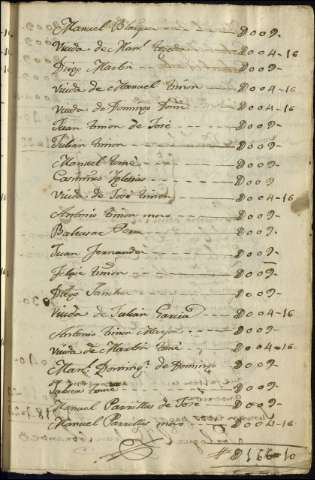 Manuel Blazquez D009-
Viuda de Man.l D004-16
Diego Martin D009-
Viuda de Manuel timon D004-16
Viuda de Domingo tomé D004-16
Juan timon de José D009-
Julian timon D009-
Manuel tomé D009-
Casimiro Yglesias D009
Viuda de José timon D004-16
Antonio timon D009-
Baltasar D009-
Juan Fernandez D009-
Felipe timon D009-
Diego Sanchez D009-
Viuda de Julian Garcia D004-16
Antonio timon D009-
Viuda de Martin tomé D004-16
Man.l Doming.z de Domingo D009-
tomé D009-
Manuel Parrillas de José D009-
Manuel Parrillas D004-16
D166-10